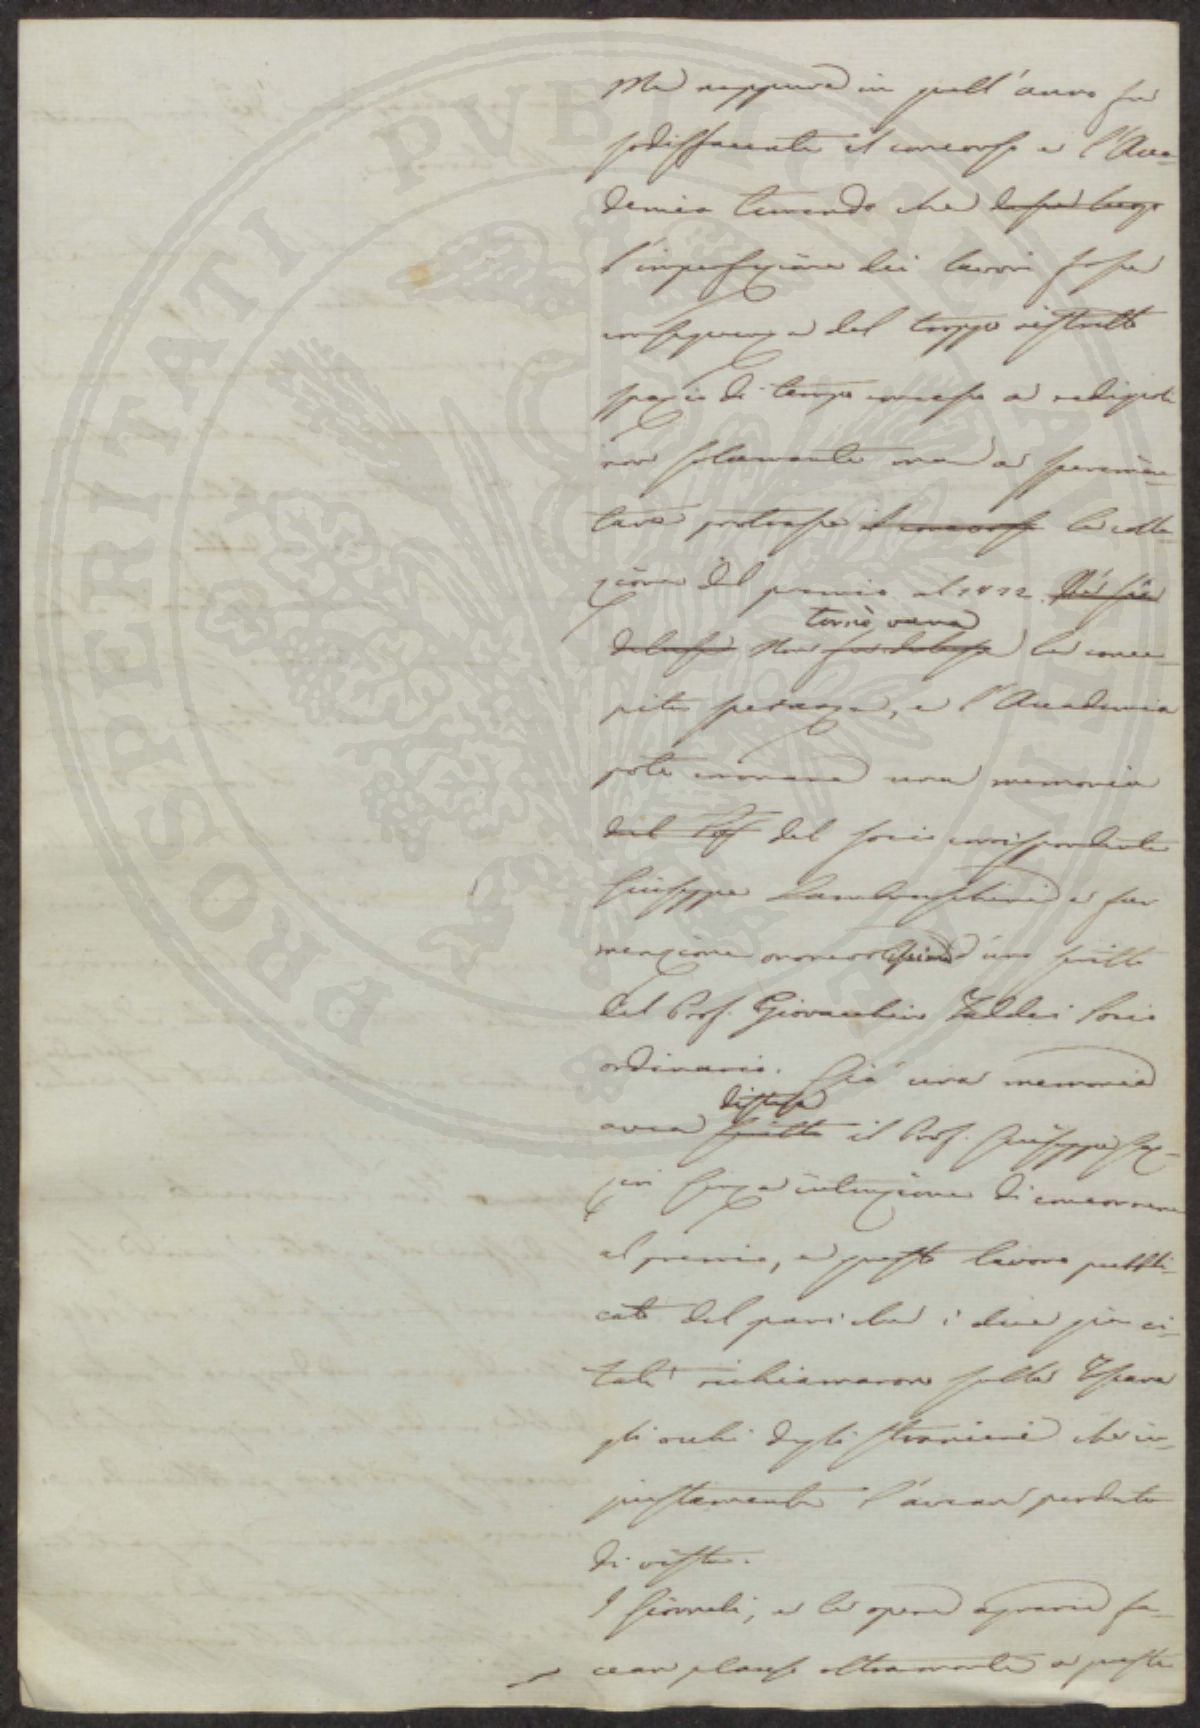 Ma neppure in quell'anno fu
sodisfacente il concorso e l'Acca-
demia temendo che da fra luogo
l'imperfezione dei lavori fosse
conseguenza del troppo ristretto
spazio di tempo concesso a redigerli
non solamente ma a sperimen-
tare protrasse il concorso la colla-
zione del premio al 1812. Nè fu
delusa Non fu delusa la conce-
tornò vana
pita speranza, e l'Accademia
potè coronare una memoria
del Prof del socio corrispondente
Giuseppe Lambruschini e far
menzione onorevolissima d'uno scritto
del Prof. Giovacchino Taddei Socio
ordinario. Già una memoria
distesa
avea scritto il Prof. Giuseppe Gaz-
zeri senza intenzione di concorrere
al premio, e questo lavoro pubbli-
cato del pari che i due già ci-
tati richiamarono sulla Toscana
gli occhi degli stranieri che in-
giustamente l'avean perduta
di vista.
I Giornali, e le opere agrarie fa-
cean plauso oltramonte a queste
PROSPERITATI PVBLICAE AVGENDAE